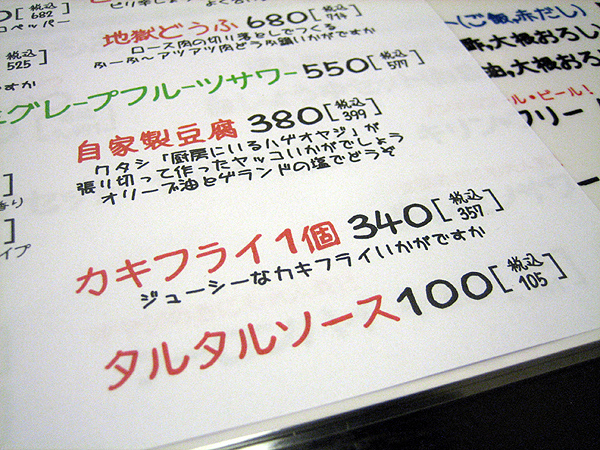 0[税込 682]
ペッパー
地獄どうふ 680[税込 714]
ロース肉の切り落としでつくる
ふーふ〜アツアツ肉どうふ鍋いかがですか
525]
すか
グレープフルーツサワー 550[税込 577]
自家製豆腐 380[税込 399]
ワタシ「厨房にいるハゲオヤジ」が
張り切って作ったヤッコいかがでしょう
オリーブ油とゲランドの塩でどうぞ
カキフライ1個 340[税込 357]
ジューシーなカキフライいかがですか
タルタルソース100[税込 105]
イプ
(ご飯,赤だし)
酢,大根おろし
油,大根おろし
ル・ビール!
フリー